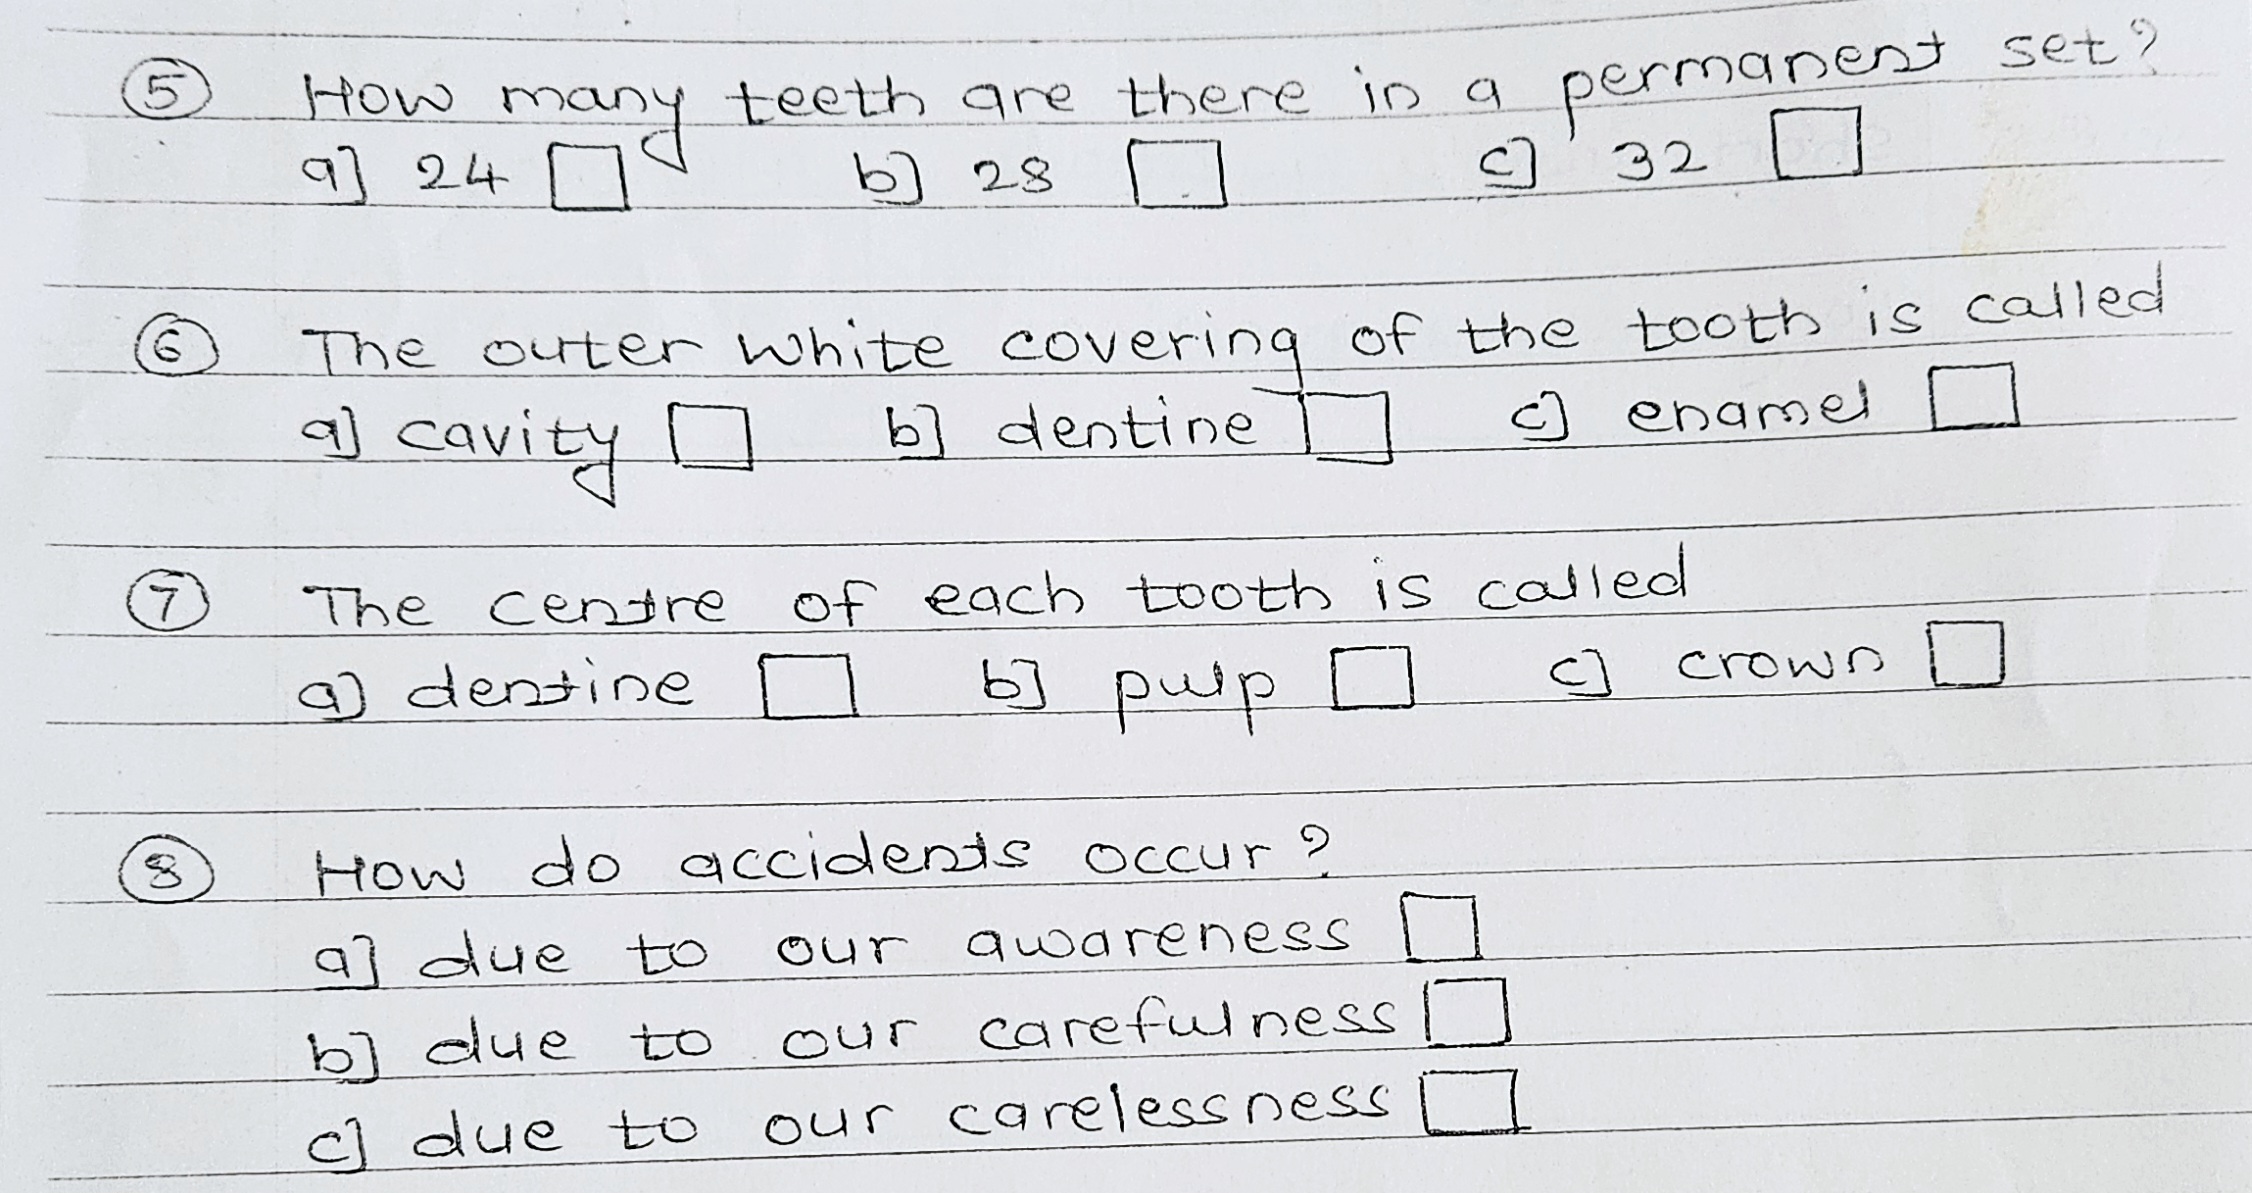 5 How many teeth are there in a permanent set?
a] 24 b] 28 c] 32
6 The outer white covering of the tooth is called
a] cavity b] dentine c] enamel
7 The centre of each tooth is called
a] dentine b] pulp c] crown
8 How do accidents occur?
a] due to our awareness
b] due to our carefulness
c] due to our carelessness